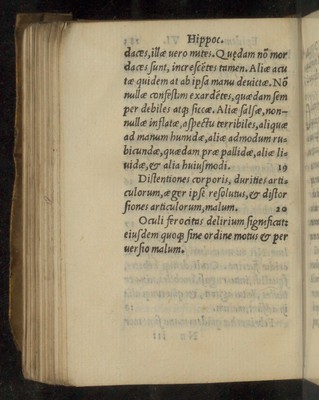 Hippoc.
daces, illæ uero mites. Quędam nō mor
daces sunt, increscētes tamen. Aliæ acu
tæ quidem at ab ipsa manu deuictæ. Nō
nullæ confestim exardētes, quædam sem
per debiles atq; siccæ. Aliæ salsæ, non-
nullæ inflatæ, aspectu terribiles, aliquæ
ad manum humidæ, aliæ admodum ru-
bicundæ, quædam præ pallidæ, aliæ li-
uidæ, & alia huiusmodi. 19
Distentiones corporis, durities arti-
culorum, æger ipse resolutus, & distor
siones articulorum, malum. 20
Oculi ferocitas delirium significat:
eiusdem quoq; sine ordine motus & per
uersio malum.